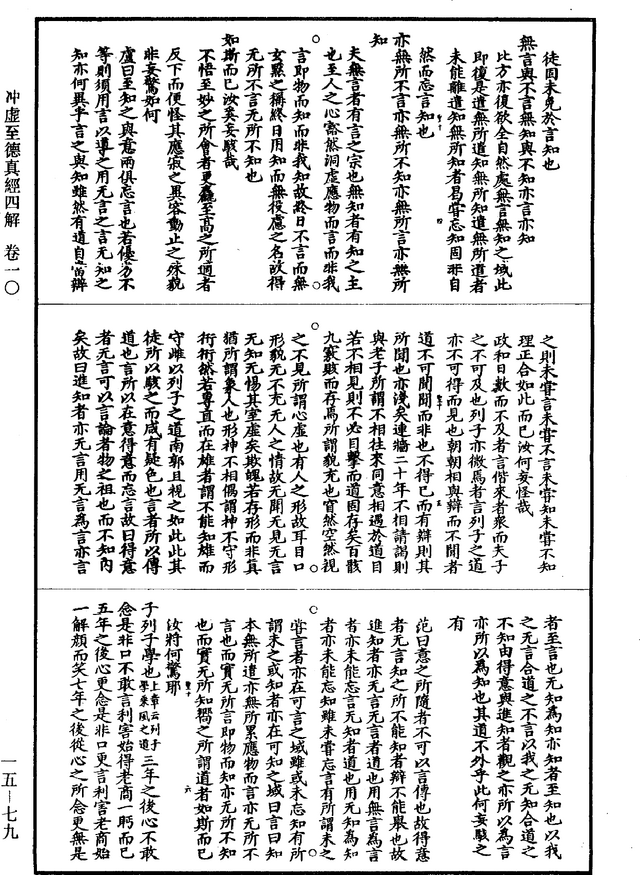 徒固未免於言知也
無言與不言無知與不知亦言亦知
比方亦復欲全自然處無言無知之域此
即復是遣無所遣知無所知遣無所遣者
未能離遣知無所知者曷嘗忘知固非自
然而忘言知也
亦無所不言亦無所不知亦無所言亦無所
知
夫無言者有言之宗也無知者有知之主
也至人之心豁然洞虛應物而言而非我
言即物而知而非我知故終日不言而無
玄默之稱終日用知而無役慮之名故得
無所不言無所不知也
如斯而已汝奚妄駭哉
不悟至妙之所會者更麤至高之所適者
反下而便怪其應寂之異容動止之殊貌
非妄驚如何
盧曰至知之與意兩俱忘言也若優劣不
等則須用言以導之用無言之言無知之
知亦何異乎言之與知雖然有道自當辯
之則未嘗言未嘗不言未嘗知未嘗不知
理正合如此而已汝何妄怪哉
政和日數而不及者言偕來者衆而夫子
之不可及也列子亦微焉者言列子之道
亦不可得而見也朝朝相與辯而不聞者
道不可聞聞而非也不得已而有辯則其
所聞也亦淺矣連牆二十年不相請謁則
與老子所謂不相往來同意相遇於道目
若不相見則不必目擊而道固存矣百骸
九竅賅而存焉所謂貌充也窅然空然視
之不見所謂心虛也有人之形故耳目口
形貌无不充无人之情故无聞无見无言
无知无惕其室虛矣欺魄若存形而非真
猶所謂象人也形神不相偶謂神不守形
衎衎然若專直而在雄者謂不能知雄而
守雌以列子之道南郭且視之如此此其
徒所以駭之而咸有疑色也言者所以傳
道也言所以在意得意而忘言故曰得意
者无言可以言論者物之祖也而不知內
矣故曰進知者亦无言用无言爲言亦言
者至言也无知爲知亦知者至知也以我
之无言合道之不言以我之无知合道之
不知由得意與進知者觀之亦所以爲言
亦所以爲知也其道不外乎此何妄駭之
有
范曰意之所隨者不可以言傳也故得意
者无言知之所不能知者辯不能舉也故
進知者亦无言无言者道也用無言爲言
者亦未能忘言无知者道也用无知爲知
者亦未能忘知雖未嘗忘言有所謂未之
嘗言者亦在可言之域雖或未忘知有所
謂未之或知者亦在可知之域曰言曰知
本無所遣亦無所累應物而言亦无所不
言也而實无所言即物而知亦无所不知
也而實无所知嚮之所謂道者如斯而已
汝將何驚耶
子列子學也上章云列子學乘風之道三年之後心不敢
念是非口不敢言利害始得老商一眄而已
五年之後心更念是非口更言利害老商始
一解顏而笑七年之後從心之所念更無是
冲虛至德真經四解 卷一〇
一五—七九